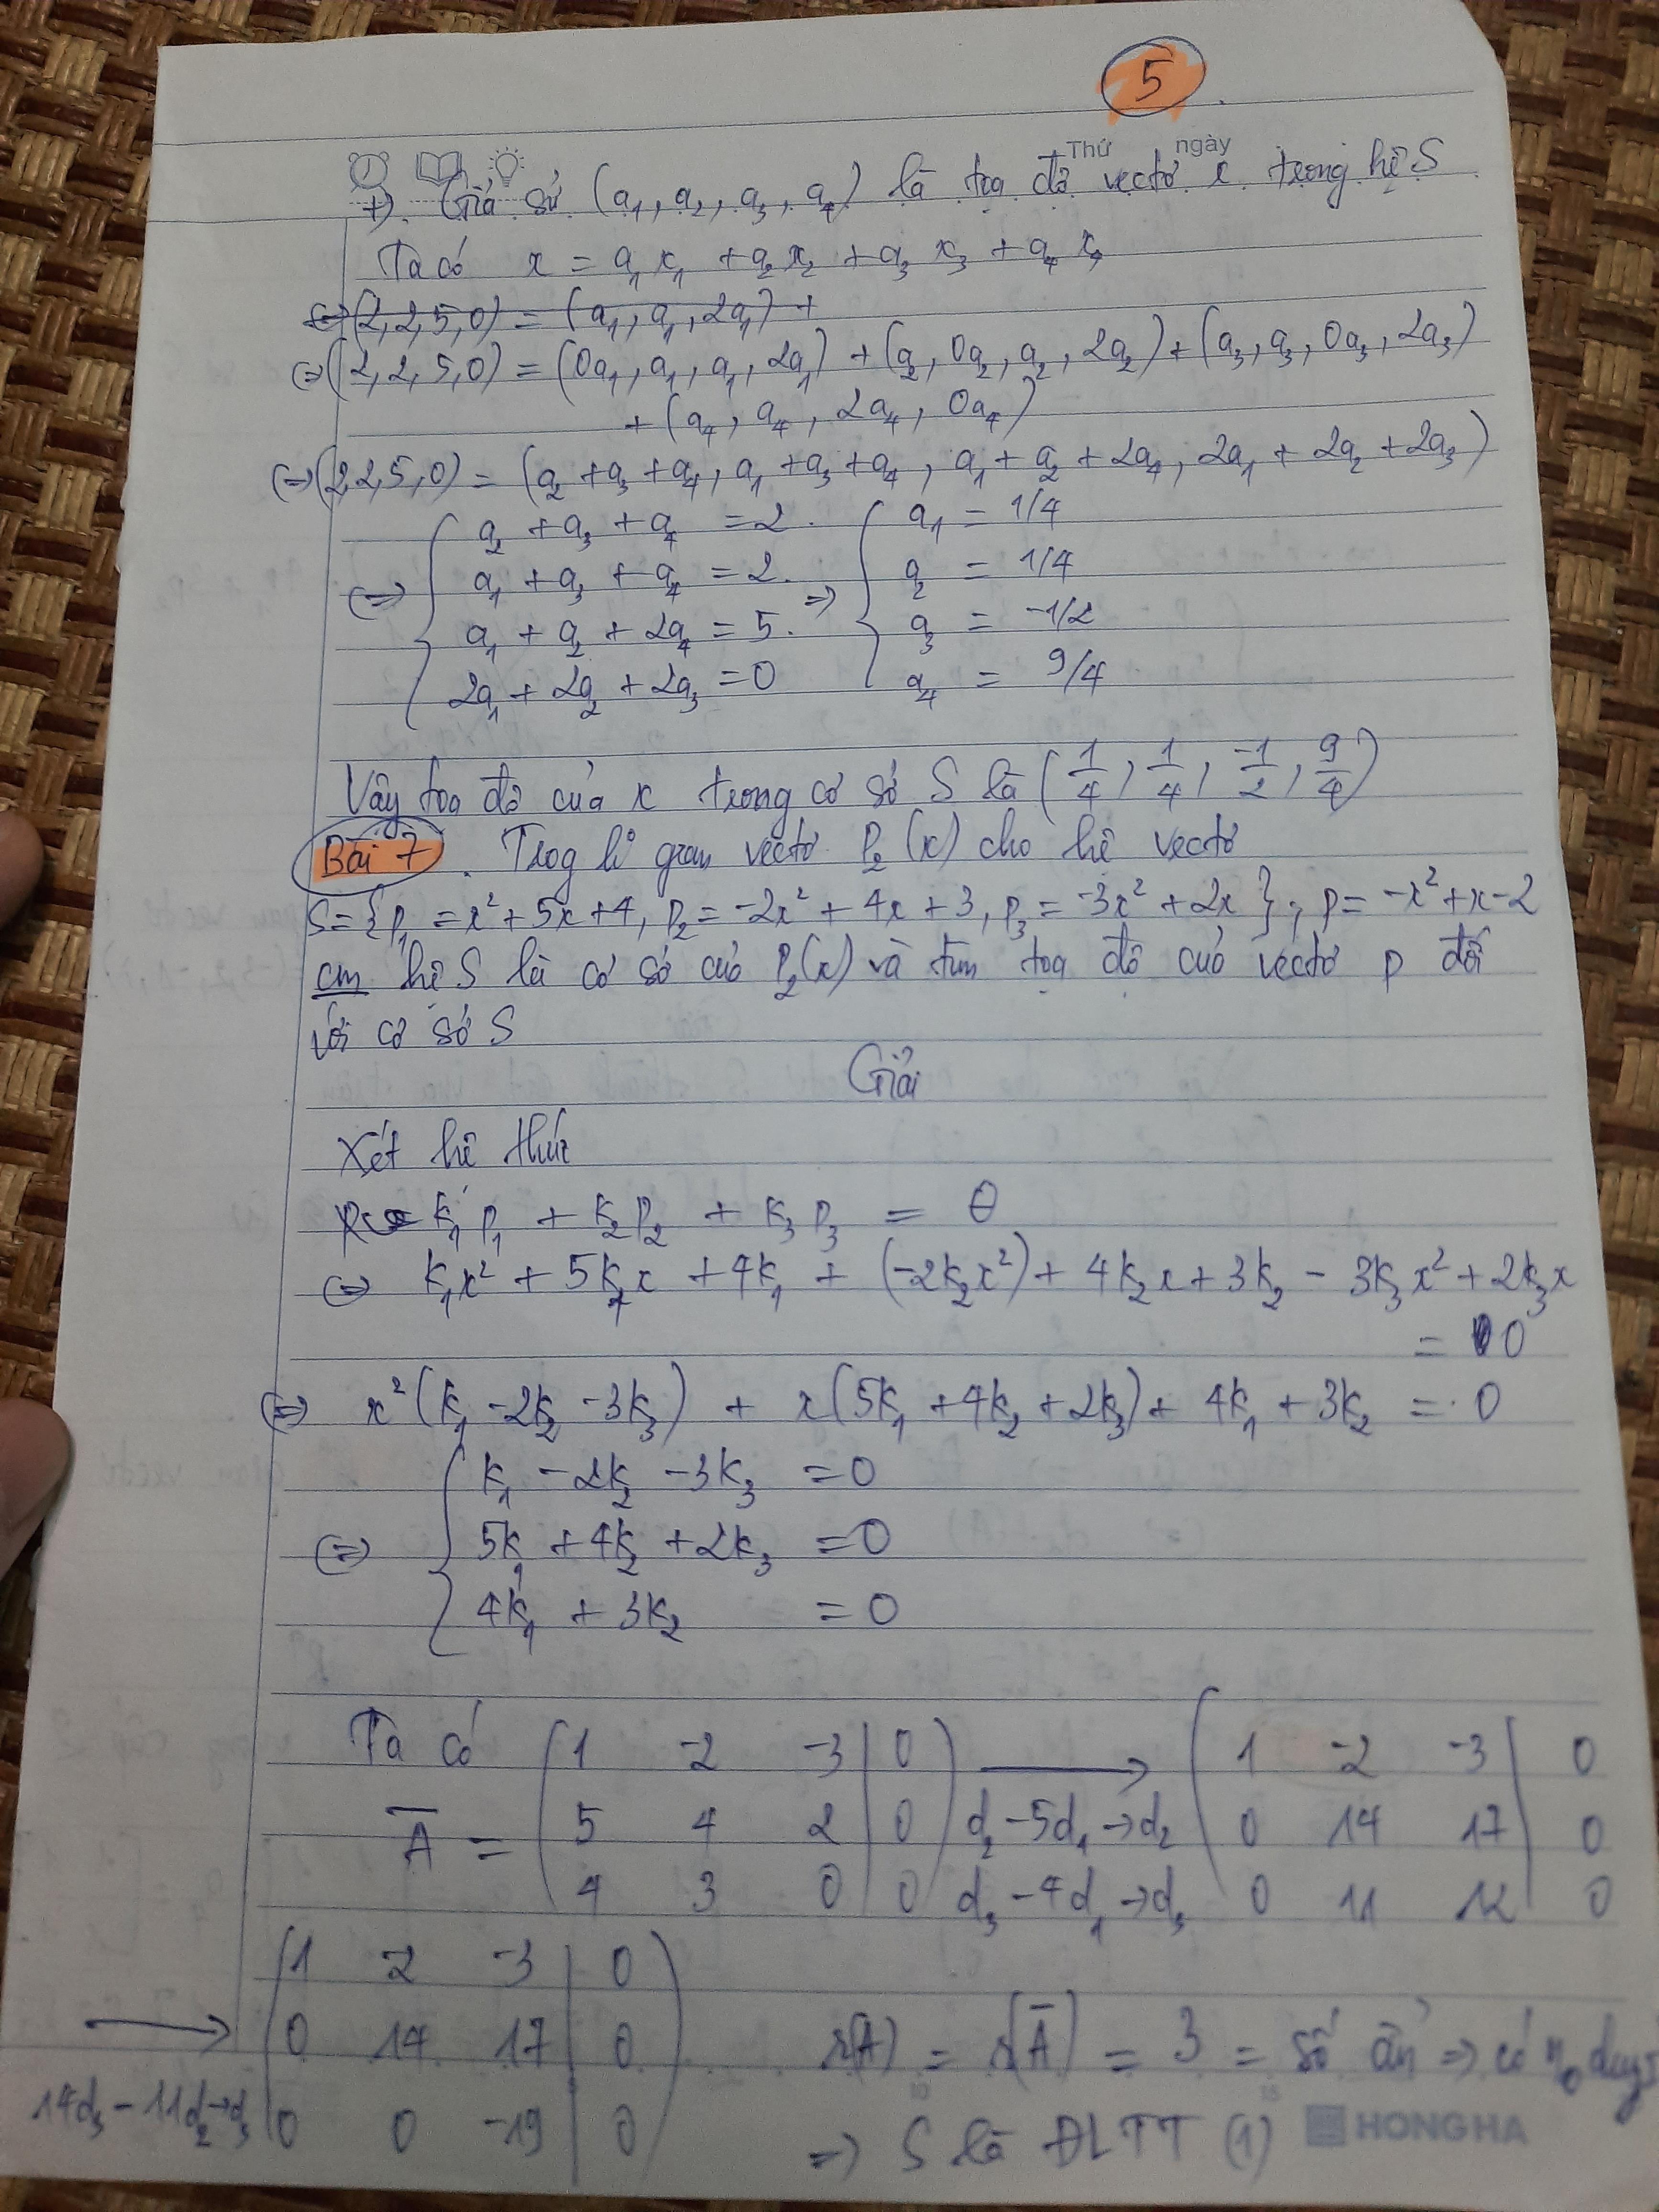 5
Thứ ngày
+). Giả sử (a₁, a₂, a₃, a₄) là tọa độ vectơ x trong hệ S
Ta có x = a₁x₁ + a₂x₂ + a₃x₃ + a₄x₄
⇔ (2,2,5,0) = (a₁, a₁, 2a₁) +
⇔ (2,2,5,0) = (0a₁, a₁, a₁, 2a₁) + (a₂, 0a₂, a₂, 2a₂) + (a₃, a₃, 0a₃, 2a₃)
+ (a₄, a₄, 2a₄, 0a₄)
⇔ (2,2,5,0) = (a₂ + a₃ + a₄, a₁ + a₃ + a₄, a₁ + a₂ + 2a₄, 2a₁ + 2a₂ + 2a₃)
a₂ + a₃ + a₄ = 2. a₁ = 1/4
⇔ a₁ + a₃ + a₄ = 2. ⇒ a₂ = 1/4
a₁ + a₂ + 2a₄ = 5. a₃ = -1/2
2a₁ + 2a₂ + 2a₃ = 0 a₄ = 9/4
Vậy tọa độ của x trong cơ sở S là (1/4, 1/4, -1/2, 9/4)
Bài 7. Trog k gian vectơ P₂(x) cho hệ vectơ
S = {p₁ = x² + 5x + 4, p₂ = -2x² + 4x + 3, p₃ = -3x² + 2x}; p = -x² + x - 2
cm hệ S là cơ sở của P₂(x) và tìm tọa độ của vectơ p đối
với cơ sở S
Giải
Xét hệ thức
k₁p₁ + k₂p₂ + k₃p₃ = θ
⇔ k₁x² + 5k₁x + 4k₁ + (-2k₂x²) + 4k₂x + 3k₂ - 3k₃x² + 2k₃x
= 0
⇔ x²(k₁ - 2k₂ - 3k₃) + x(5k₁ + 4k₂ + 2k₃) + 4k₁ + 3k₂ = 0
k₁ - 2k₂ - 3k₃ = 0
⇔ 5k₁ + 4k₂ + 2k₃ = 0
4k₁ + 3k₂ = 0
Ta có ( 1 -2 -3 | 0 ) → ( 1 -2 -3 | 0
A̅ = 5 4 2 | 0 d₂ - 5d₁ → d₂ 0 14 17 | 0
4 3 0 | 0 d₃ - 4d₁ → d₃ 0 11 12 | 0
( 1 -2 -3 | 0 )
→ 0 14 17 | 0 r(A) = r(A̅) = 3 = số ẩn ⇒ có n₀ duy
14d₃ - 11d₂ → d₃ 0 0 -19 | 0 ⇒ S là ĐLTT (1)
HONG HA